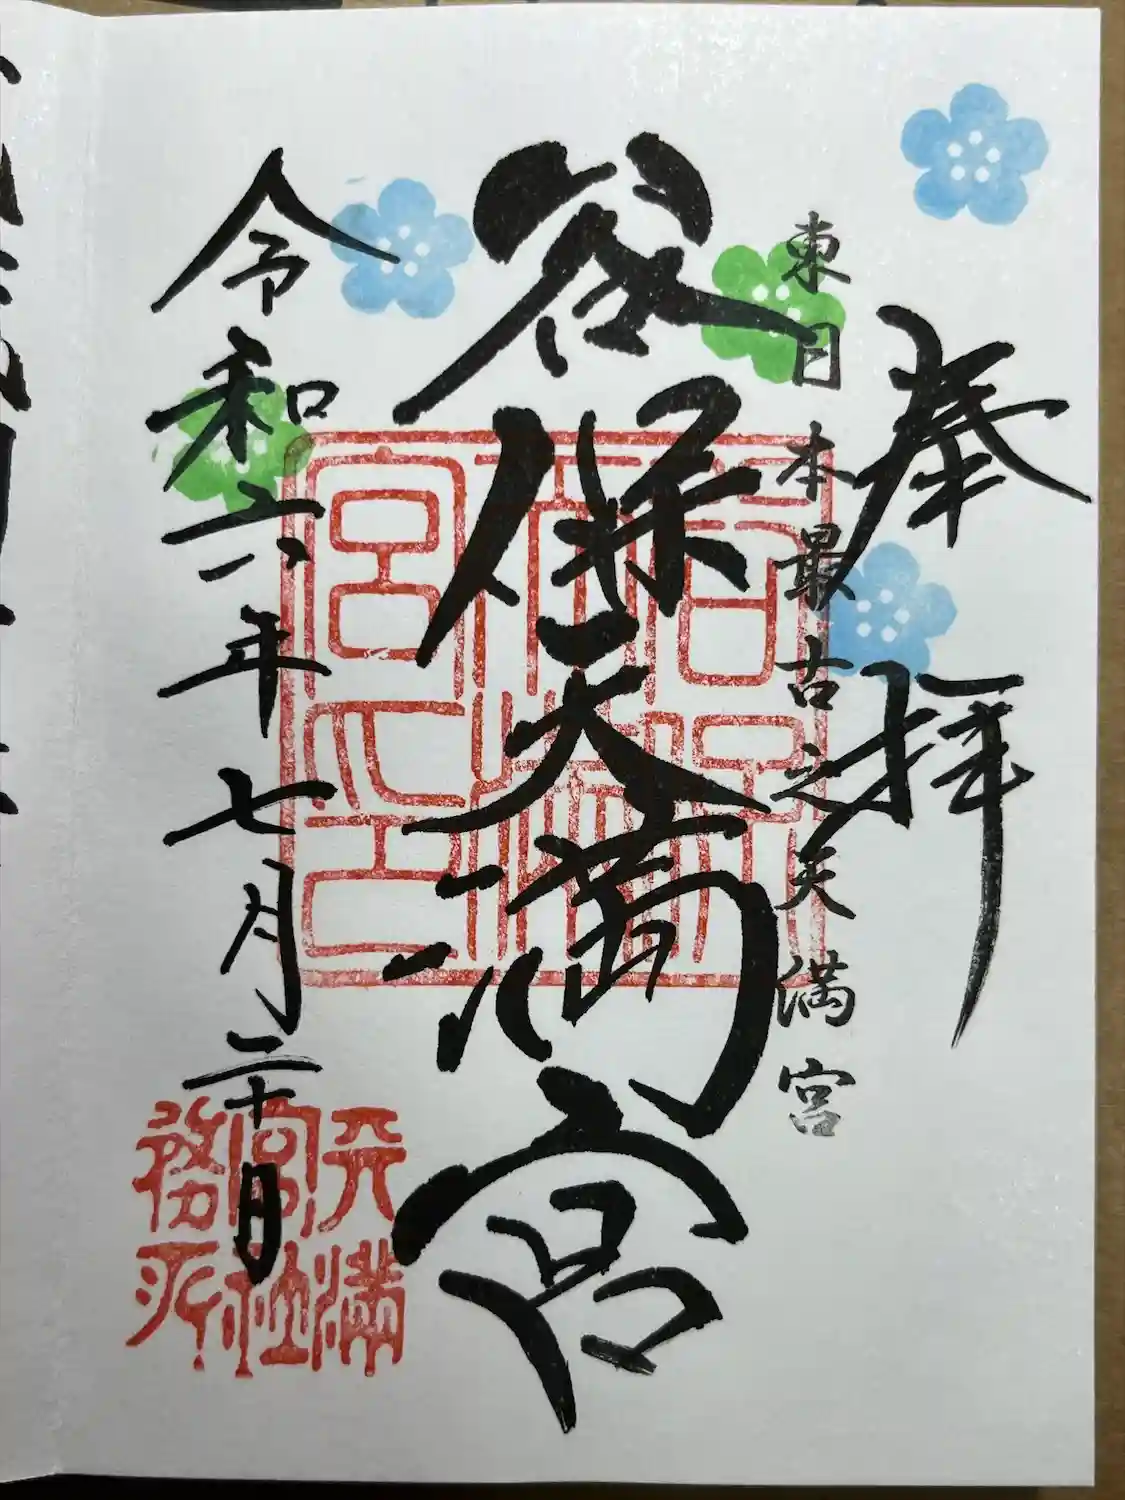 奉拝
東日本最古之天満宮
谷保天満宮
令和六年七月二十日
天満宮社務所